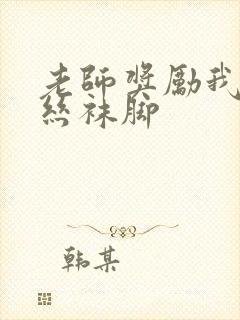 老師獎勵我
絲袜脚
韩某